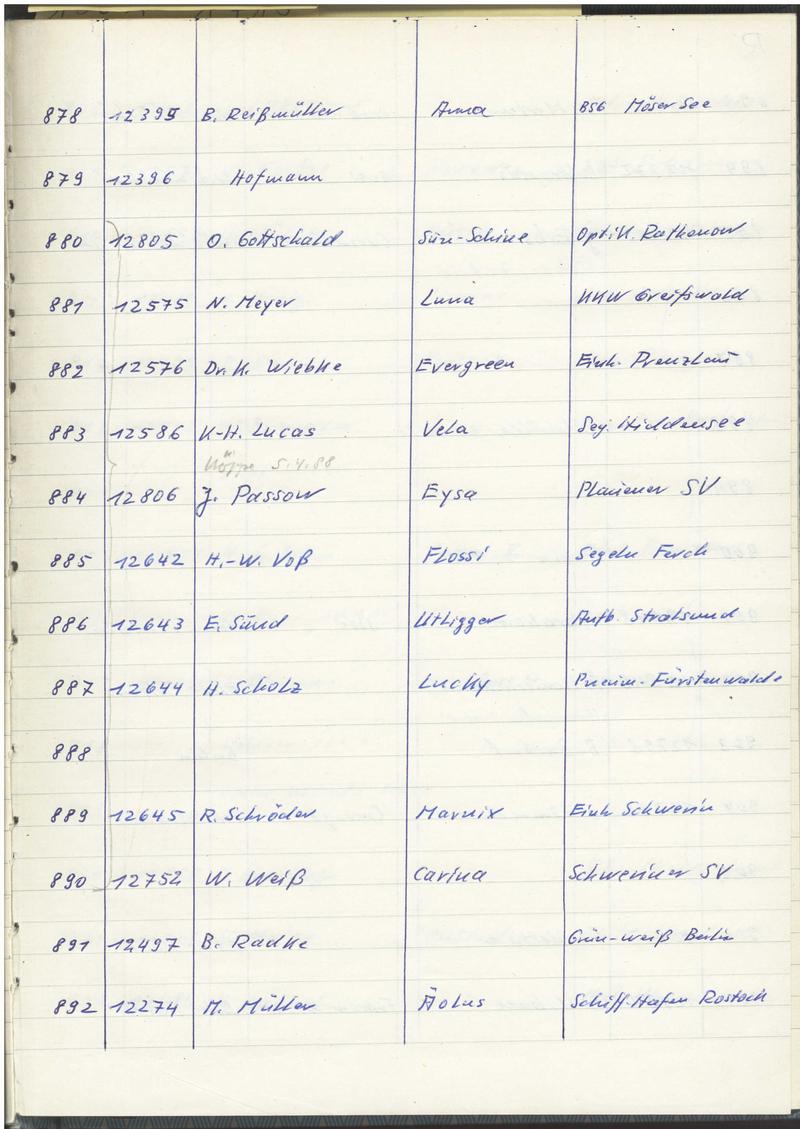 878 12395 B. Reißmüller Anna BSG Möser See
879 12396 Hofmann
880 12805 O. Gottschald Sun-Schine Optik. Rathenow
881 12575 N. Meyer Luna KKW Greifswald
882 12576 Dr. K. Wiebke Evergreen Einh. Prenzlau
883 12586 K-H. Lucas Vela Seg. Hiddensee
5.4.88
884 12806 J. Passow Eysa Plauener SV
885 12642 H.-W. Voß Flossi Segeln Ferch
886 12643 E. Sünd Utligger Aufb. Stralsund
887 12644 H. Scholz Lucky Pneum.-Fürstenwalde
888
889 12645 R. Schröder Marnix Einh Schwerin
890 12752 W. Weiß Carina Schweriner SV
891 12497 B. Radke Grün-weiß Berlin
892 12274 M. Müller Äolus Schiff-Hafen Rostock